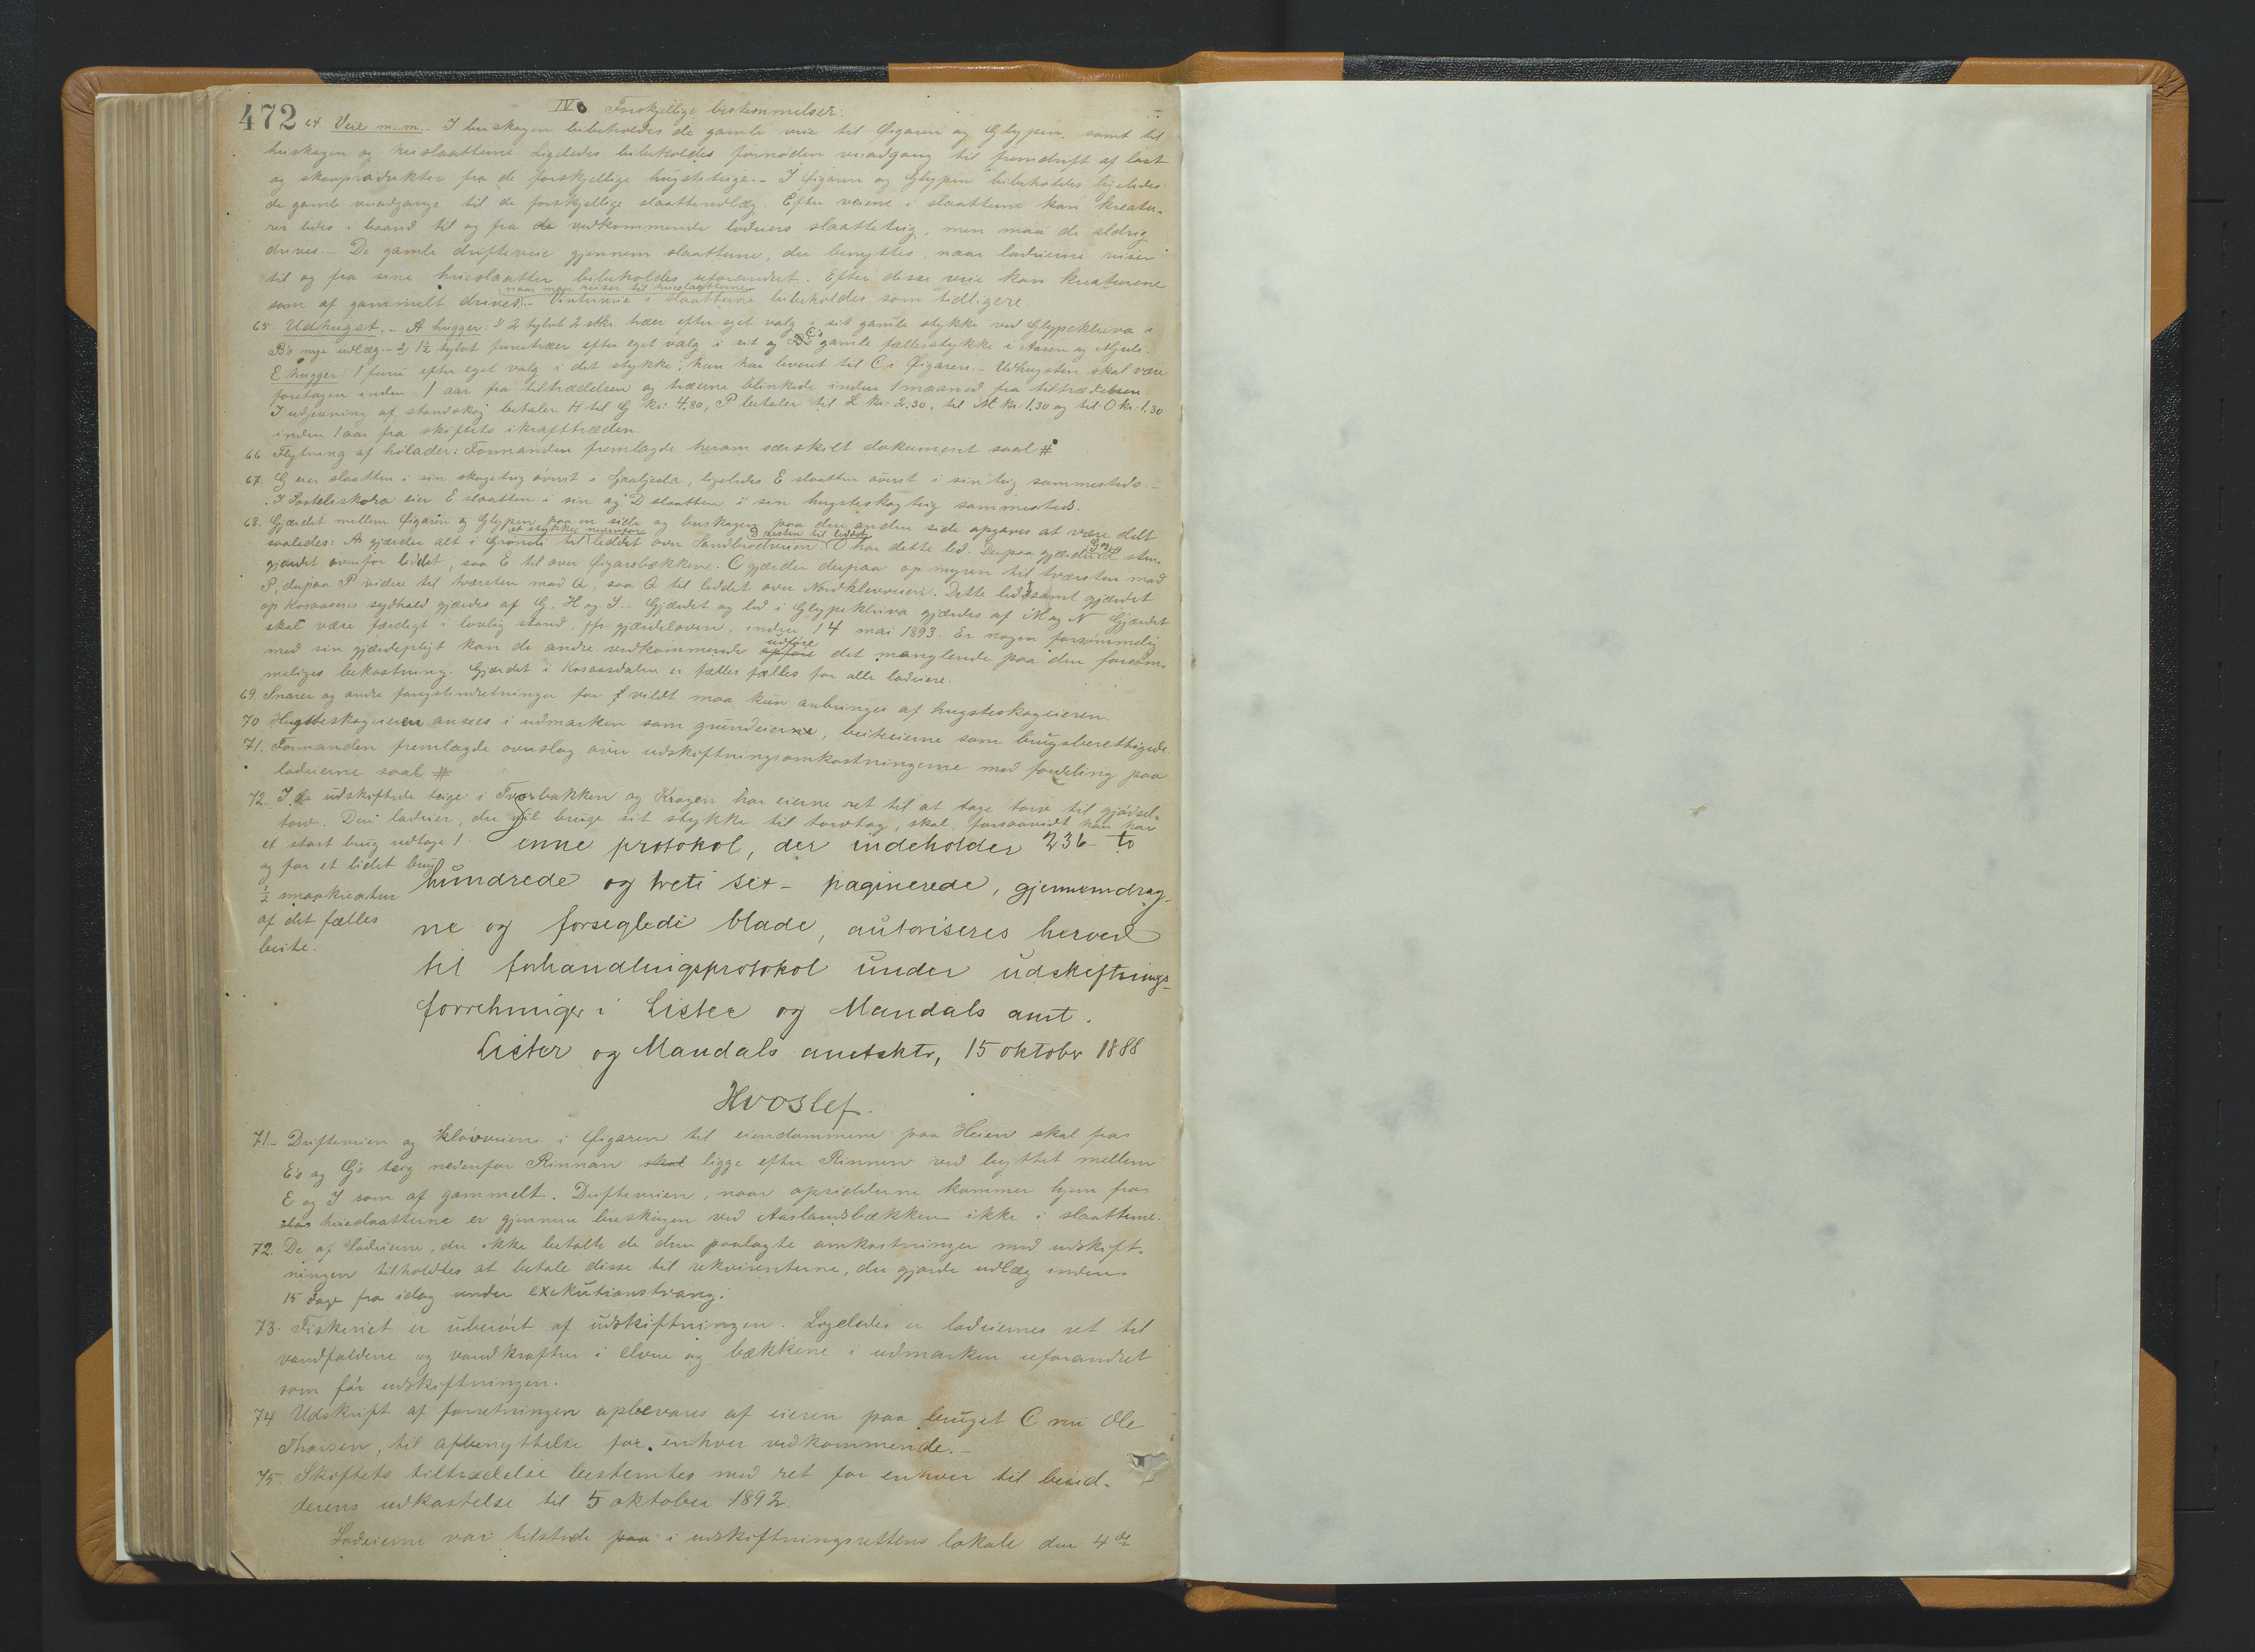 472
IV. Forskjellige bestemmelser.
64. Veie m.m. - I buskogen bibeholdes de gamle veie til Øigaren og Glypen, samt til
heiskogen og heislaatterne. Ligeledes bibeholdes fornøden veiadgang til fremdrift af last
og skovprodukter fra de forskjellige hugsteteige. - I Øigaren og Glypen bibeholdes ligeledes
de gamle veiadgange til de forskjellige slaatteudlæg. Efter veiene i slaatterne kan kreatu-
rer ledes i baand til og fra de vedkommende lodeiers slaatteteig, men maa de aldrig
drives. - De gamle drifteveie gjennem slaatterne, der benyttes, naar lodeierne reiser
til og fra sine heieslaatter bibeholdes uforandret. Efter disse veie kan kreaturene
som af gammelt drives naar man reiser til heieslaatterne. - Vinterveie i slaatterne bibeholdes som tidligere
65. Udhugst. - A hugger: 1) 2 tylvt 2 stkr. træer efter eget valg i sit gamle stykke ved Glypekleiva i
B's nye udlæg. - 2) 1½ tylvt furutræer efter eget valg i sit og C's gamle fællesstykke i Aasen og Mjuli.
E hugger: 1 furu efter eget valg i det stykke, han har leveret til C i Øigaren. - Udhugsten skal være
foretagen inden 1 aar fra tiltrædelsen og træerne blinkede inden 1 maaned fra tiltrædelsen
I udjevning af standskog betaler H til G kr: 4,80, P betaler til L kr: 2.30, til M kr: 1.30 og til O kr: 1.30
inden 1 aar fra skiftets ikrafttræden.
66. Flytning af hølader: Formanden fremlagde herom særskilt dokument saal #
67. G eier slaatten i sin skogeteig øverst i Gaaljesla, ligeledes E slaatten øverst i sin teig sammesteds. -
I Sosteliskora eier E slaatten i sin og D slaatten i sin hugsteskogteig sammesteds.
68. Gjærdet mellem Øigaren og Glypen paa en side og buskogen paa den anden side opgaves at være delt
saaledes: A gjærder alt i Grønsli til et stykke nedenfor leddet over Sandbrodveien D resten til leddet O har dette led. Derpaa gjærder G og L sten-
gjærdet ovenfor leddet, saa E til over Øigarsbækken. C gjærder derpaa op myren til tværsten mod
P, derpaa P videre til tværelen mod Q, saa Q til leddet over Nordklevveien. Dette led samt gjærdet
op Kosaasens sydhald gjærdes af G, H og I. - Gjærdet og led i Glypekleiva gjærdes af M og N Gjærdet
skal være færdigt i lovlig stand, jfr. gjærdeloven, inden 14 mai 1893. Er nogen forsømmelig
med sin gjærdepligt kan de andre vedkommende opføre udføre det manglende paa den forsøm-
meliges bekostning. Gjærdet i Kosaasdalen er fælles fælles for alle lodeiere.
69. Snarer og andre fangstindretninger for vildt maa kun anbringes af hugsteskogeieren.
70 Hugsteskogeieren ansees i udmarken som grundeierne, beiteeierne som brugsberettigede.
71. Formanden fremlagde overslag over udskiftningsomkostningerne med fordeling paa
lodeierne saal #
72. I de udskiftede teige i Tverbakken og Kragen har eierne ret til at tage torv til gjødsel-
torv. Den lodeier, der vil bruge sit stykke til torvtag, skal, forsaavidt han har
et stort brug udtage 1
og for et lidet brug
½ smaakreatur
af det fælles
beite.
Denne protokol, der indeholder 236 - to
hundrede og treti sex - paginerede, gjennemdrag-
ne og forseglede blade, autoriseres herved
til forhandlingsprotokol under udskiftnings-
forretninger i Lister og Mandals amt.
Lister og Mandals amtsktr, 15 oktober 1888
Hvoslef.
71. - Drifteveien og kløvveien i Øigaren til eiendommene paa Heien skal fra
E's og G's teig nedenfor Rinnan skal ligge efter Rinnen ved byttet mellem
E og I som af gammelt. Drifteveien, naar opsidderne kommer hjem fra
heieslaatterne er gjennem buskogen ved Aaslandsbækken ikke i slaatterne.
72. De af lodeierne, der ikke betalte de dem paalagte omkostninger med udskift-
ningen tilholdtes at betale disse til rekvirenterne, der gjorde udlæg inden
15 dage fra idag under exekutionstvang.
73. Fiskeriet er uberørt af udskiftningen. Ligeledes er lodeiernes ret til
vandfaldene og vandkraften i elven og bækkene i udmarken uforandret
som før udskiftningen.
74 Udskrift af forretningen opbevares af eieren paa bruget C nu Ole
Thorsen, til afbenyttelse for enhver vedkommende. -
75. Skiftets tiltrædelse bestemtes med ret for enhver til besid-
derens udkastelse til 5 oktober 1892.
Lodeierne var tilstede paa i udskiftningsrettens lokale den 4de